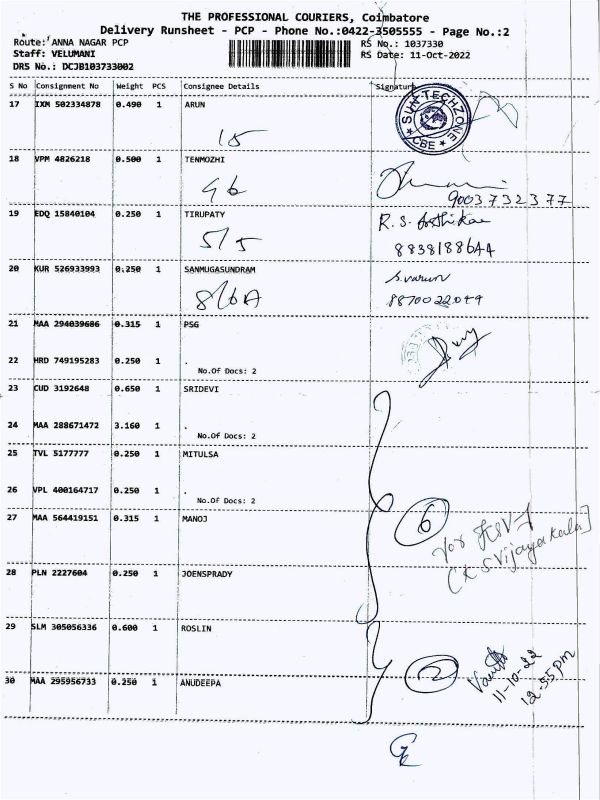 THE PROFESSIONAL COURIERS, Coimbatore
Delivery Runsheet - PCP - Phone No.:0422-3505555 - Page No.:2
Route: ANNA NAGAR PCP
RS No.: 1037330
Staff: VELUMANI
RS Date: 11-Oct-2022
DRS No.: DCJB103733002
S No Consignment No Weight PCS Consignee Details Signature
17 IXM 502334878 0.490 1 ARUN
SUN TECHZONE
* CBE *
15
18 VPM 4826218 0.500 1 TENMOZHI
9003732377
19 EDQ 15840104 0.250 1 TIRUPATY
R. S.
5/5
8838188644
20 KUR 526933993 0.250 1 SANMUGASUNDRAM
S. varun
8/6A
8870022049
21 MAA 294039686 0.315 1 PSG
22 HRD 749195283 0.250 1 .
No.Of Docs: 2
23 CUD 3192648 0.650 1 SRIDEVI
24 MAA 288671472 3.160 1 .
No.Of Docs: 2
25 TVL 5177777 0.250 1 MITULSA
26 VPL 400164717 0.250 1 .
No.Of Docs: 2
27 MAA 564419151 0.315 1 MANOJ
6
for
(K S Vijayakala)
28 PLN 2227604 0.250 1 JOENSPRADY
29 SLM 305056336 0.600 1 ROSLIN
2
11-10-22
12-55 pm
30 MAA 295956733 0.250 1 ANUDEEPA